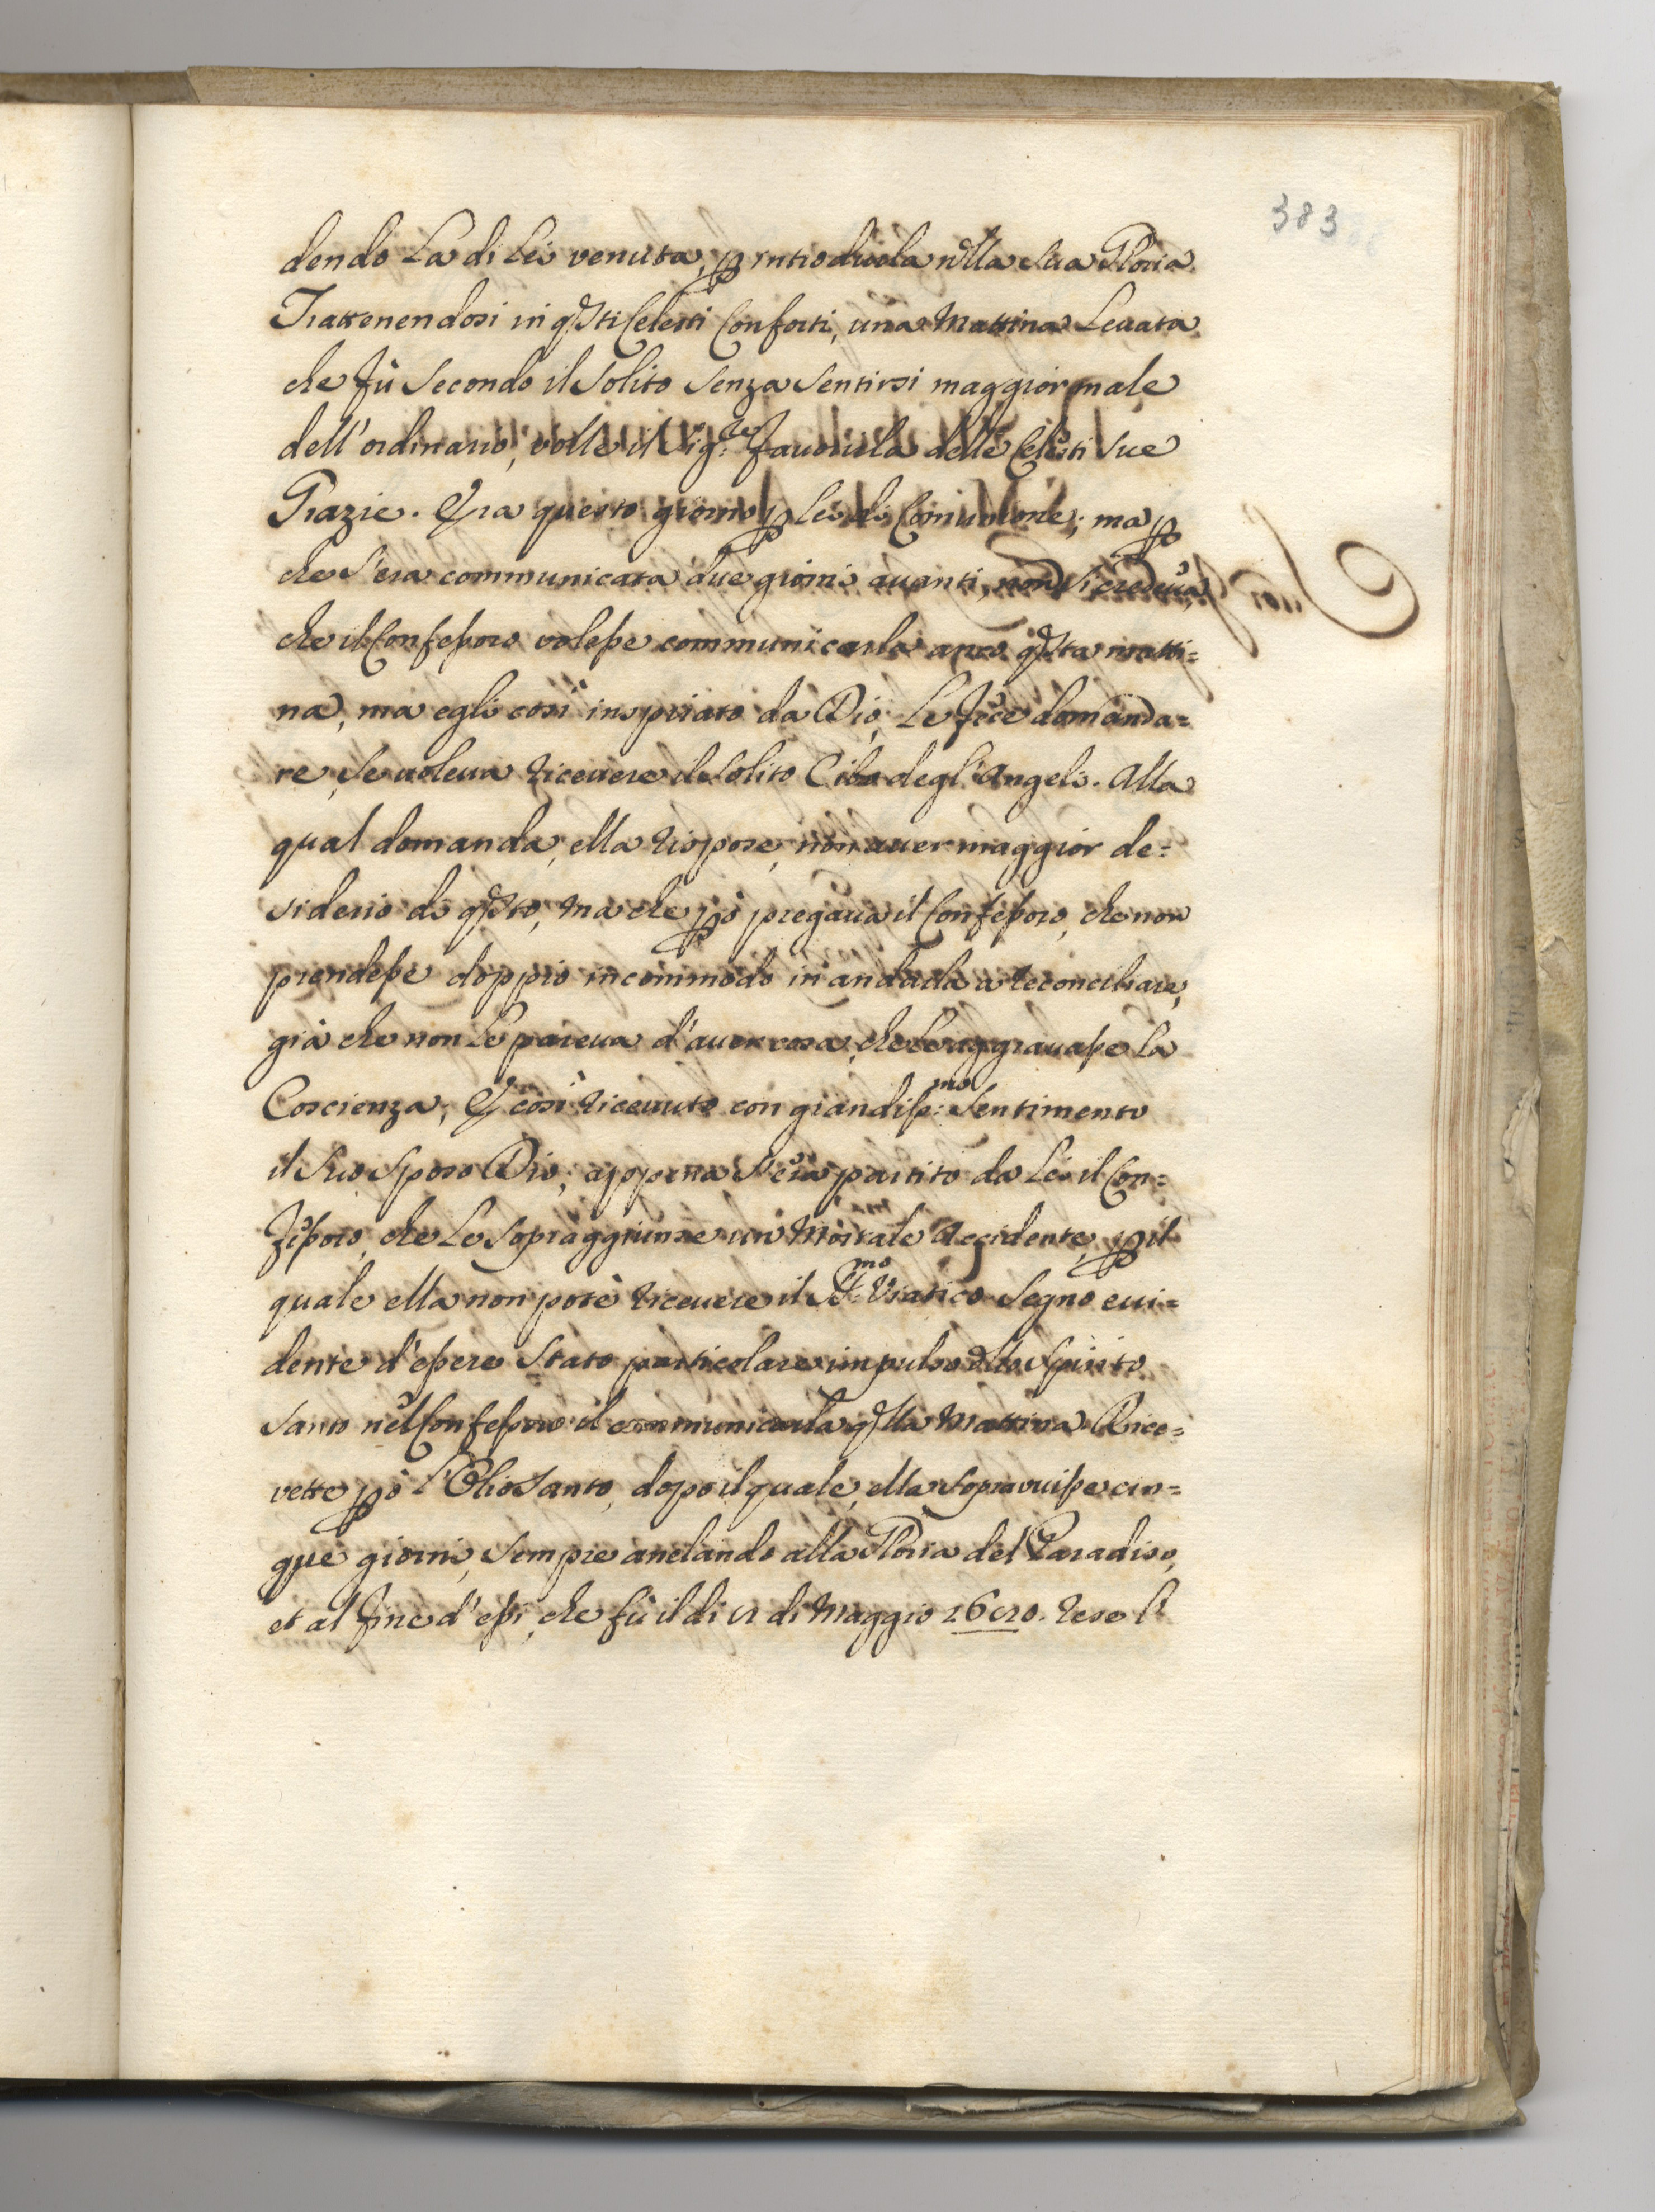 383
dendo La di Lei venuta, ꝑ introdurla nlla sua Gloria.
Trattenendosi in qsti Celesti Conforti, una Mattina Leuata
che fù secondo il solito senza sentirsi maggior male
dell'ordinario, volle il Sig:re fauorirla delle Celesti sue
Grazie. Era questo giorno ꝑ Lei di Comunione; ma ꝑ
che s'era communicata due giorni auanti, non si credeua,
che il Confessoro volesse communicarla anco qsta matti=
na, ma egli così inspirato da Dio, Le fece domanda=
re, se uoleua riceuere il solito Cibo degl'Angeli. Alla
qual domanda, ella rispose, non auer maggior de=
siderio di qsto, ma che ꝑò pregaua il Confessoro, che non
prendesse doppio incommodo in andarla a reconciliare,
già che non Le pareua d'auer cosa, che Le aggrauasse la
Coscienza; E così riceuuto con grandiss:mo sentimento
il suo sposo Dio; appena s'era partito da Lei il Con=
fessoro, che Le sopraggiunse un Mortale Accidente, ꝑ il
quale ella non potè riceuere il S:mo Viatico. Segno eui=
dente d'essere stato particolare impulso dllo Spirito
santo nel Confessoro il communicarla qlla Mattina. Rice=
vette ꝑò l'Olio Santo, dopo il quale, ella sopravuisse cin=
que giorni, sempre anelando alla Gloria del Paradiso,
et al fine d'essi, che fù il di 12 di Maggio 1620. rese l'